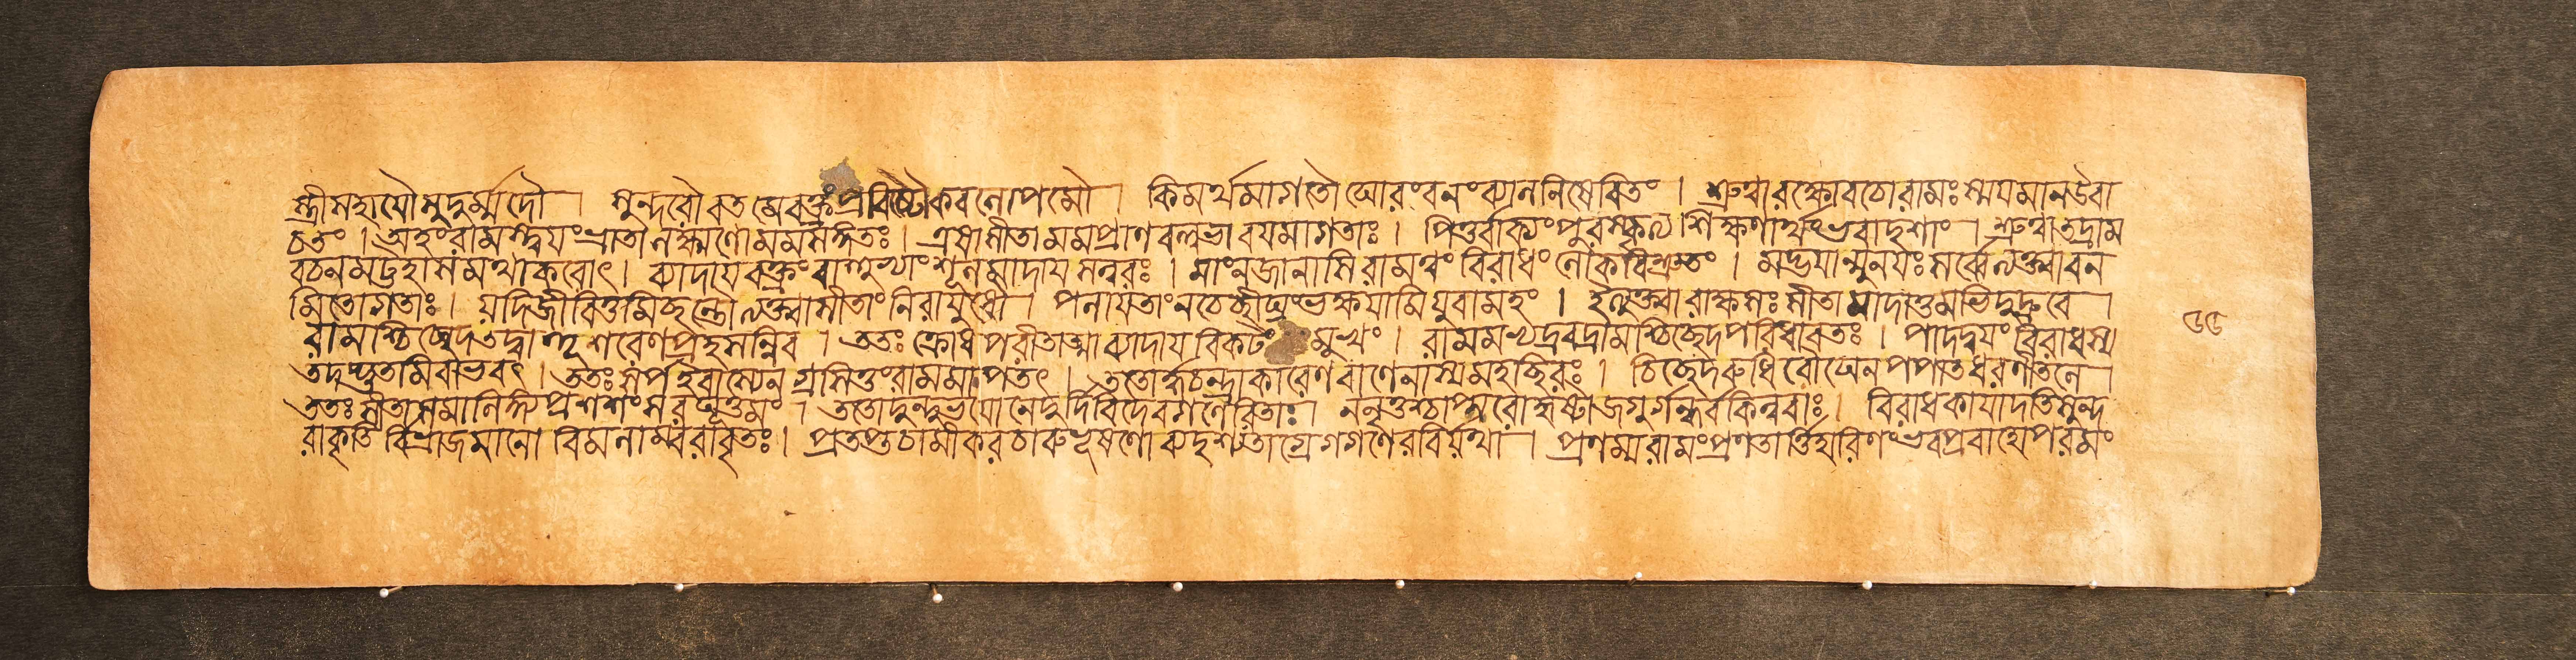 স্ত্রীসহাযৌসুদুর্ম্মদৌ । সুন্দরৌবতমেবক্ত্রংপ্রবিষ্টৌকবলোপমৌ । কিমর্থমাগতৌঘোরংবনংব্যালনিষেবিতং । শ্রুত্বারক্ষোবচোরামঃস্ময়মানউবা
চতং । অহংরামস্ত্বয়ংভ্রাতালক্ষ্মণোমমসম্মতঃ । এষাসীতামমপ্রাণবল্লভাবয়মাগতাঃ । পিতুর্ব্বাক্যংপুরস্কৃত্যশিক্ষণার্থংভবাদৃশাং । শ্রুত্বাতদ্রাম
বচনমট্টহাসমথাকরোৎ । ব্যাদায়বক্ত্রংবাহুভ্যাংশূলমাদায়সত্বরঃ । মাংনজানাসিরামত্বংবিরাধংলোকবিশ্রুতং । মদ্ভয়ান্মুনয়ঃসর্ব্বেত্যক্ত্বাবন
মিতোগতাঃ । যদিজীবিতুমিচ্ছাস্তিত্যক্ত্বাসীতাংনিরায়ুধৌ । পলায়তাংনচেচ্ছীঘ্রংভক্ষয়ামিযুবামহং । ইত্যুক্ত্বারাক্ষসঃসীতামাদাতুমভিদুদ্রুবে ।
রামশ্চিচ্ছেদতদ্বাহূশরেণপ্রহসন্নিব । ততঃক্রোধপরীতাত্মাব্যাদায়বিকটংমুখং । রামমভ্যদ্রবদ্রামশ্চিচ্ছেদপরিধাবতঃ । পাদদ্বয়ংবিরাধস্য
তদদ্ভুতমিবাভবৎ । ততঃসর্পইবাস্যেনগ্রসিতুংরামমাপতৎ । ততোর্দ্ধচন্দ্রাকারেণবাণেনাস্যমহচ্ছিরঃ । চিচ্ছেদরুধিরৌঘেনপপাতধরণীতলে ।
ততঃসীতাসমালিঙ্গ্যপ্রশশংসরঘূত্তমং । ততোদুন্দুভয়োনেদুর্দিবিদেবগণেরিতাঃ । ননৃতুশ্চাপ্সরোহৃষ্টাজগুর্গন্ধর্বকিন্নরাঃ । বিরাধকায়াদতিসুন্দ
রাকৃতির্বিভ্রাজমানোবিমলাম্বরাবৃতঃ । প্রতপ্তচামীকরচারুভূষণোব্যদৃশ্যতাগ্রেগগণেরবির্যথা । প্রণম্যরামংপ্রণতার্ত্তিহারিণংভবপ্রবাহোপরমং